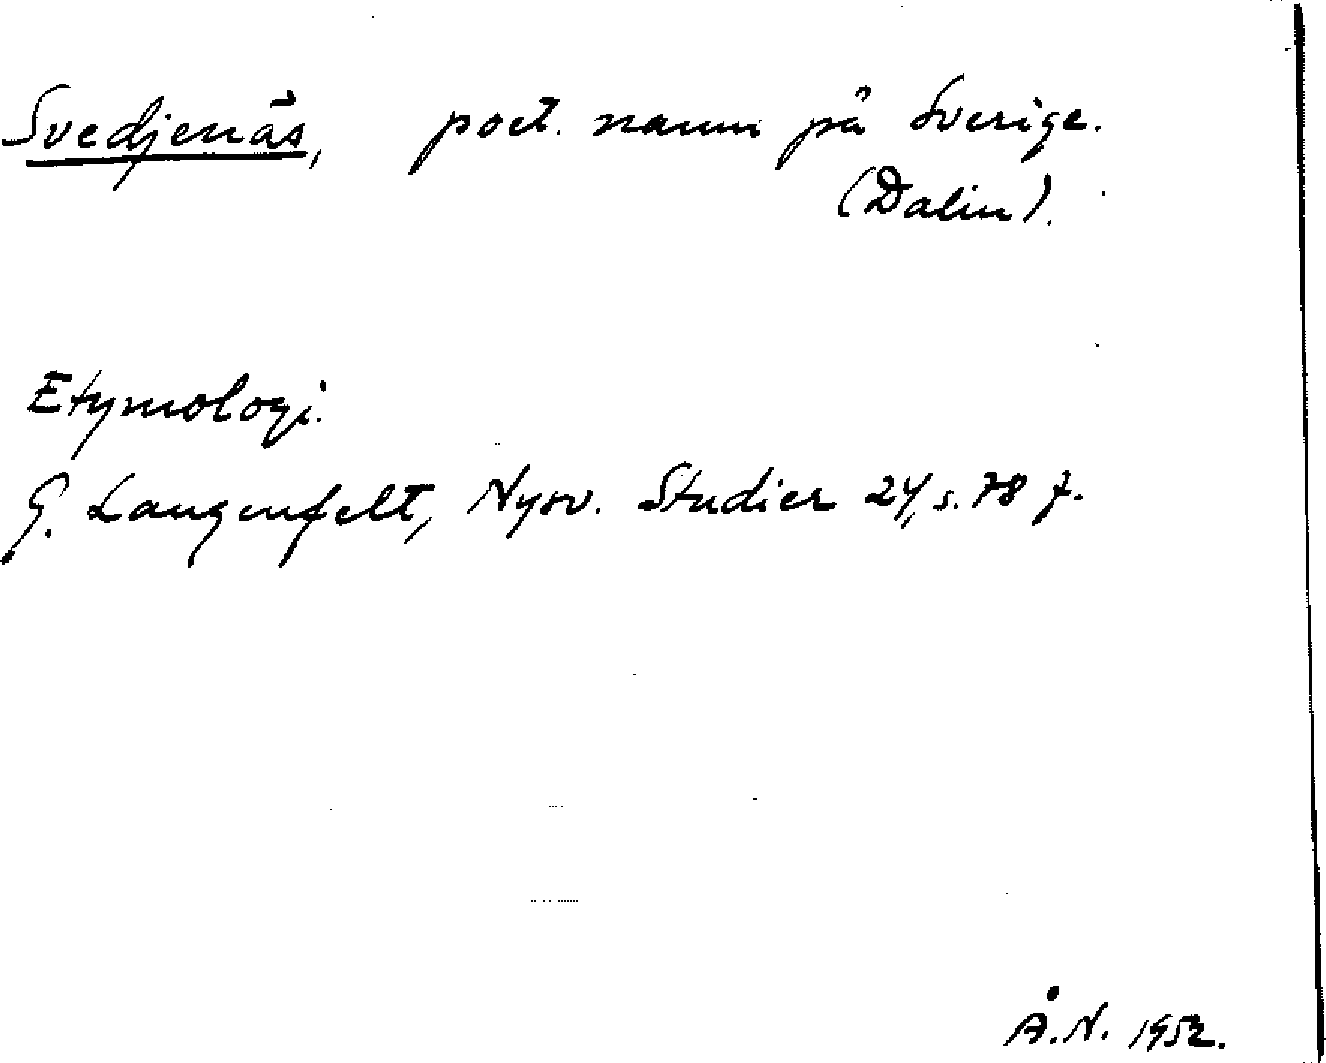 Svedjenäs, poet. namn på Sverige.
(Dalin).
Etymologi.
G. Langenfelt, Nysv. Studier 24, s. 78 f.
Å.N. 1952.